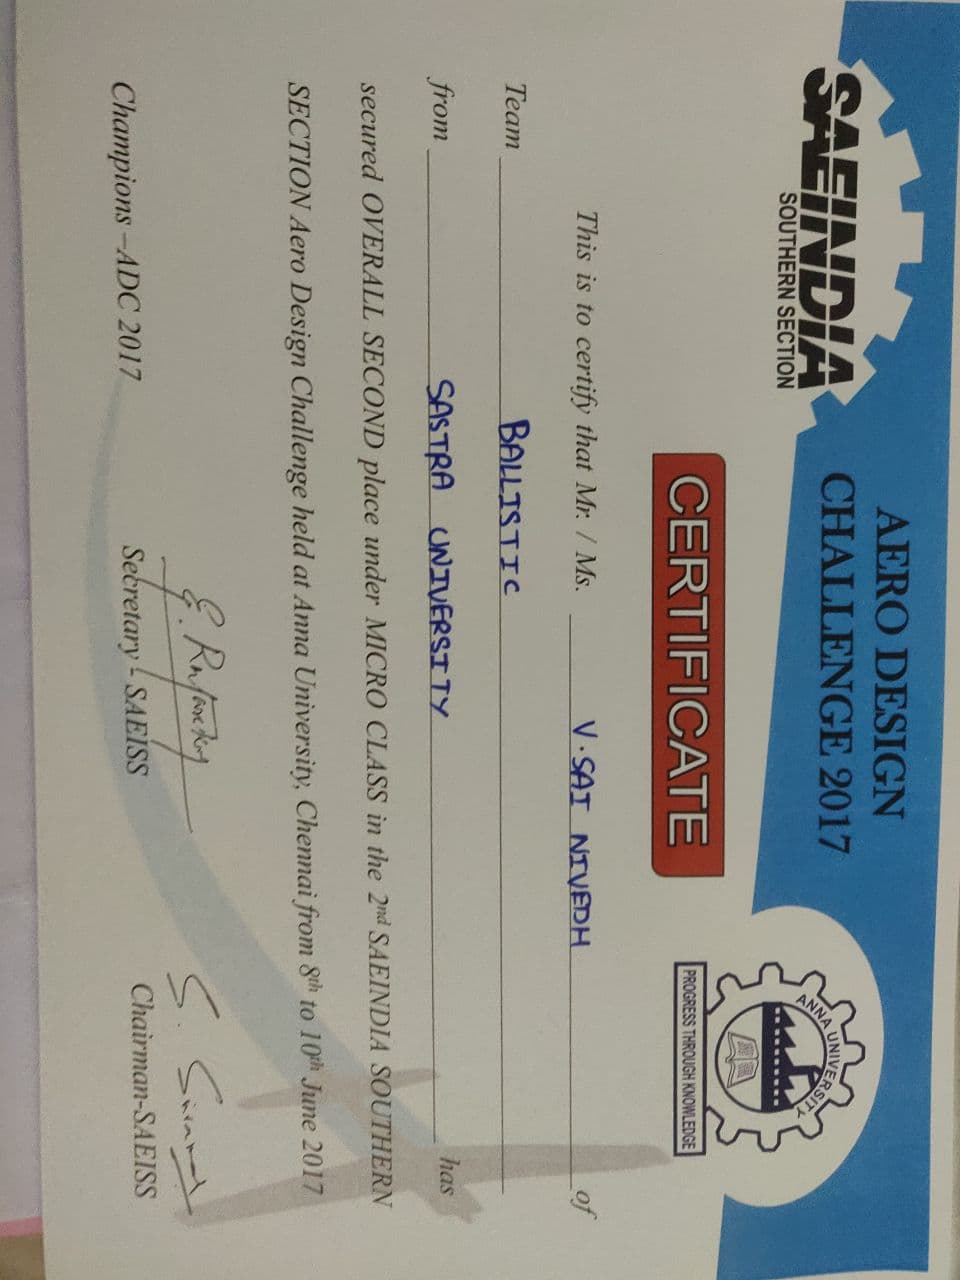 SAEINDIA
SOUTHERN SECTION
AERO DESIGN
CHALLENGE 2017
ANNA UNIVERSITY
PROGRESS THROUGH KNOWLEDGE
CERTIFICATE
This is to certify that Mr. / Ms. V. SAI NIVEDH of
Team BALLISTIC
from SASTRA UNIVERSITY has
secured OVERALL SECOND place under MICRO CLASS in the 2nd SAEINDIA SOUTHERN
SECTION Aero Design Challenge held at Anna University, Chennai from 8th to 10th June 2017
Champions –ADC 2017
Secretary - SAEISS
S.
Chairman-SAEISS